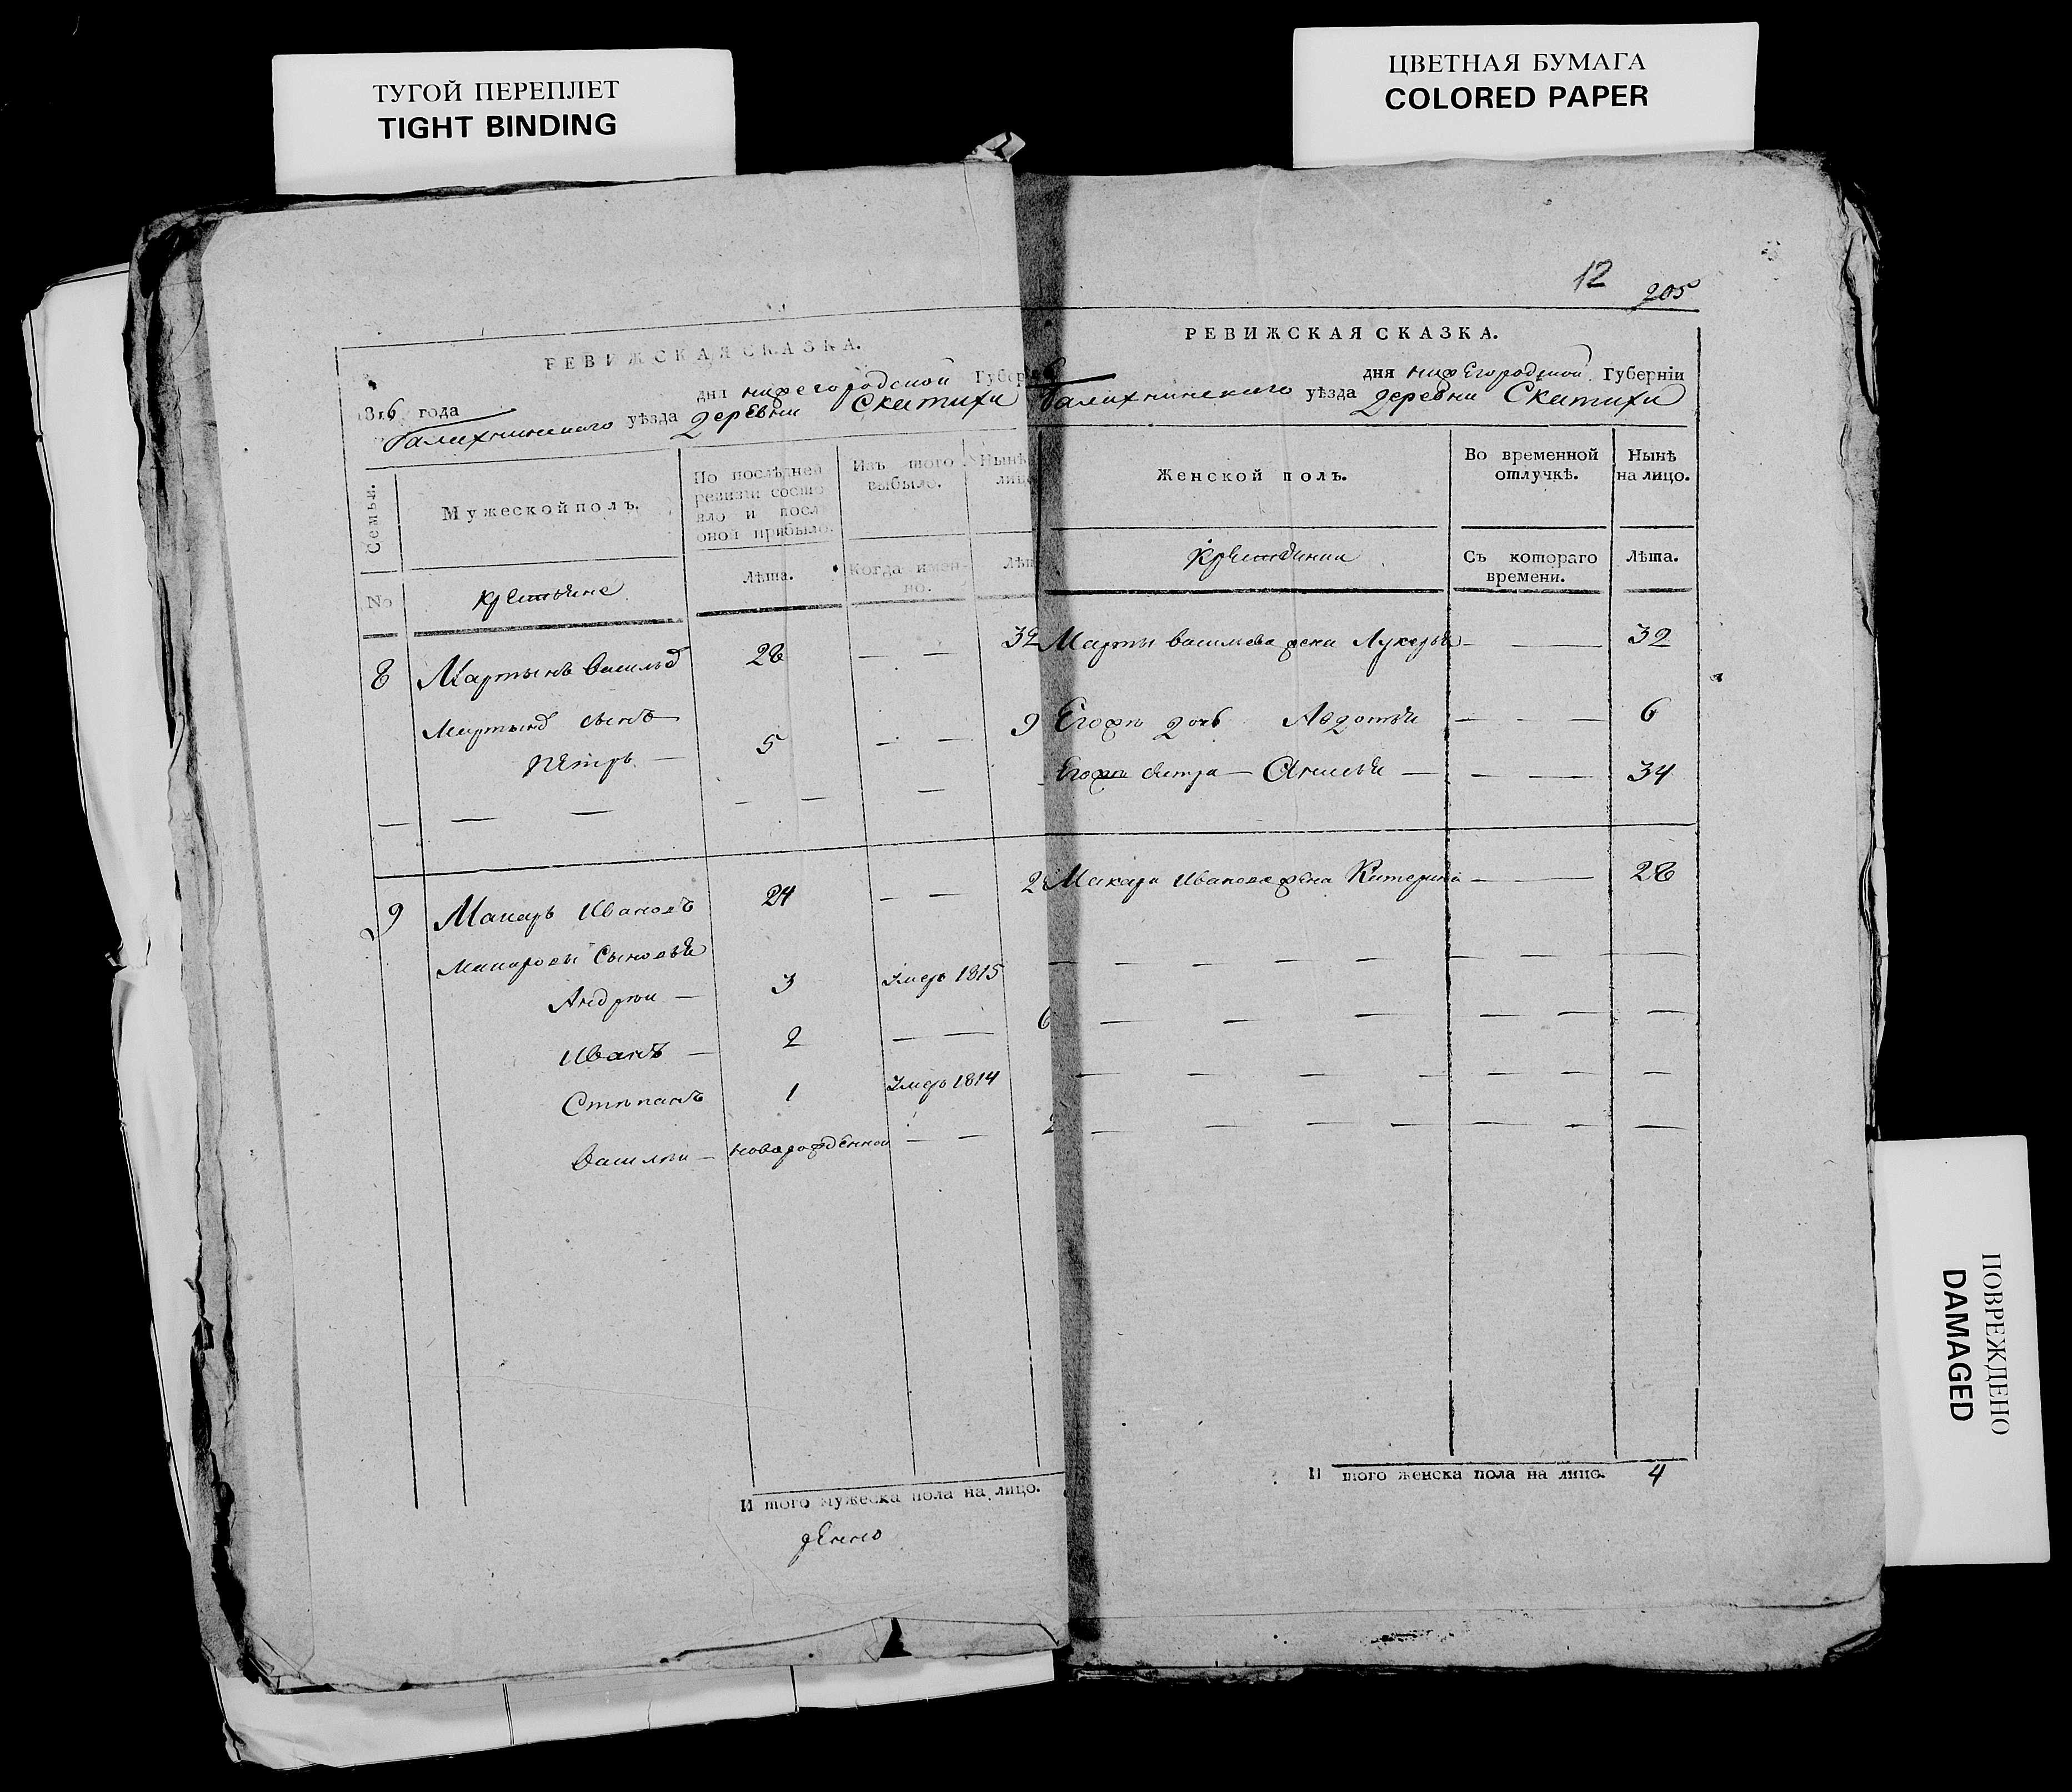 ТУГОЙ ПЕРЕПЛЕТ
TIGHT BINDING
ЦВЕТНАЯ БУМАГА
COLORED PAPER
12
205
РЕВИЖСКАЯ СКАЗКА.
1816 года дня нижегородской Губер
балахнинскаго уѣзда деревни Скатихи
Семьи.
Мужеской полъ.
По послѣдней ревизіи состояло и посл оной прибыло.
Изъ того выбыло.
Нынѣ лицо
№
крестьяне
Лѣта.
Когда имен-но.
Лѣт
8 Мартынъ васильев 28 — — 32
Мартынов сынъ
Пётръ — 5 — — 9
9 Макаръ Ивановъ 24 — — 2
Макаровы Сыновья
Андреи — 3 Умеръ 1815
Иванъ — 2 — — 6
Степанъ 1 Умеръ 1814
Василеи — новорожденной — — 2
И того мужеска пола на лицо.
РЕВИЖСКАЯ СКАЗКА.
дня нижегородской Губерніи
балахнинскаго уѣзда деревни Скатихи
Женской полъ.
Во временной отлучкѣ.
Нынѣ на лицо.
крестьянки
Съ котораго времени.
Лѣта.
Марты васильева жена Лукерья — — 32
Егожъ дочь Авдотья — — 6
Егожъ сестра — Анисья — — — 34
Макара Иванова жена Катерина — — 28
И того женска пола на лицо. 4
ПОВРЕЖДЕНО
DAMAGED